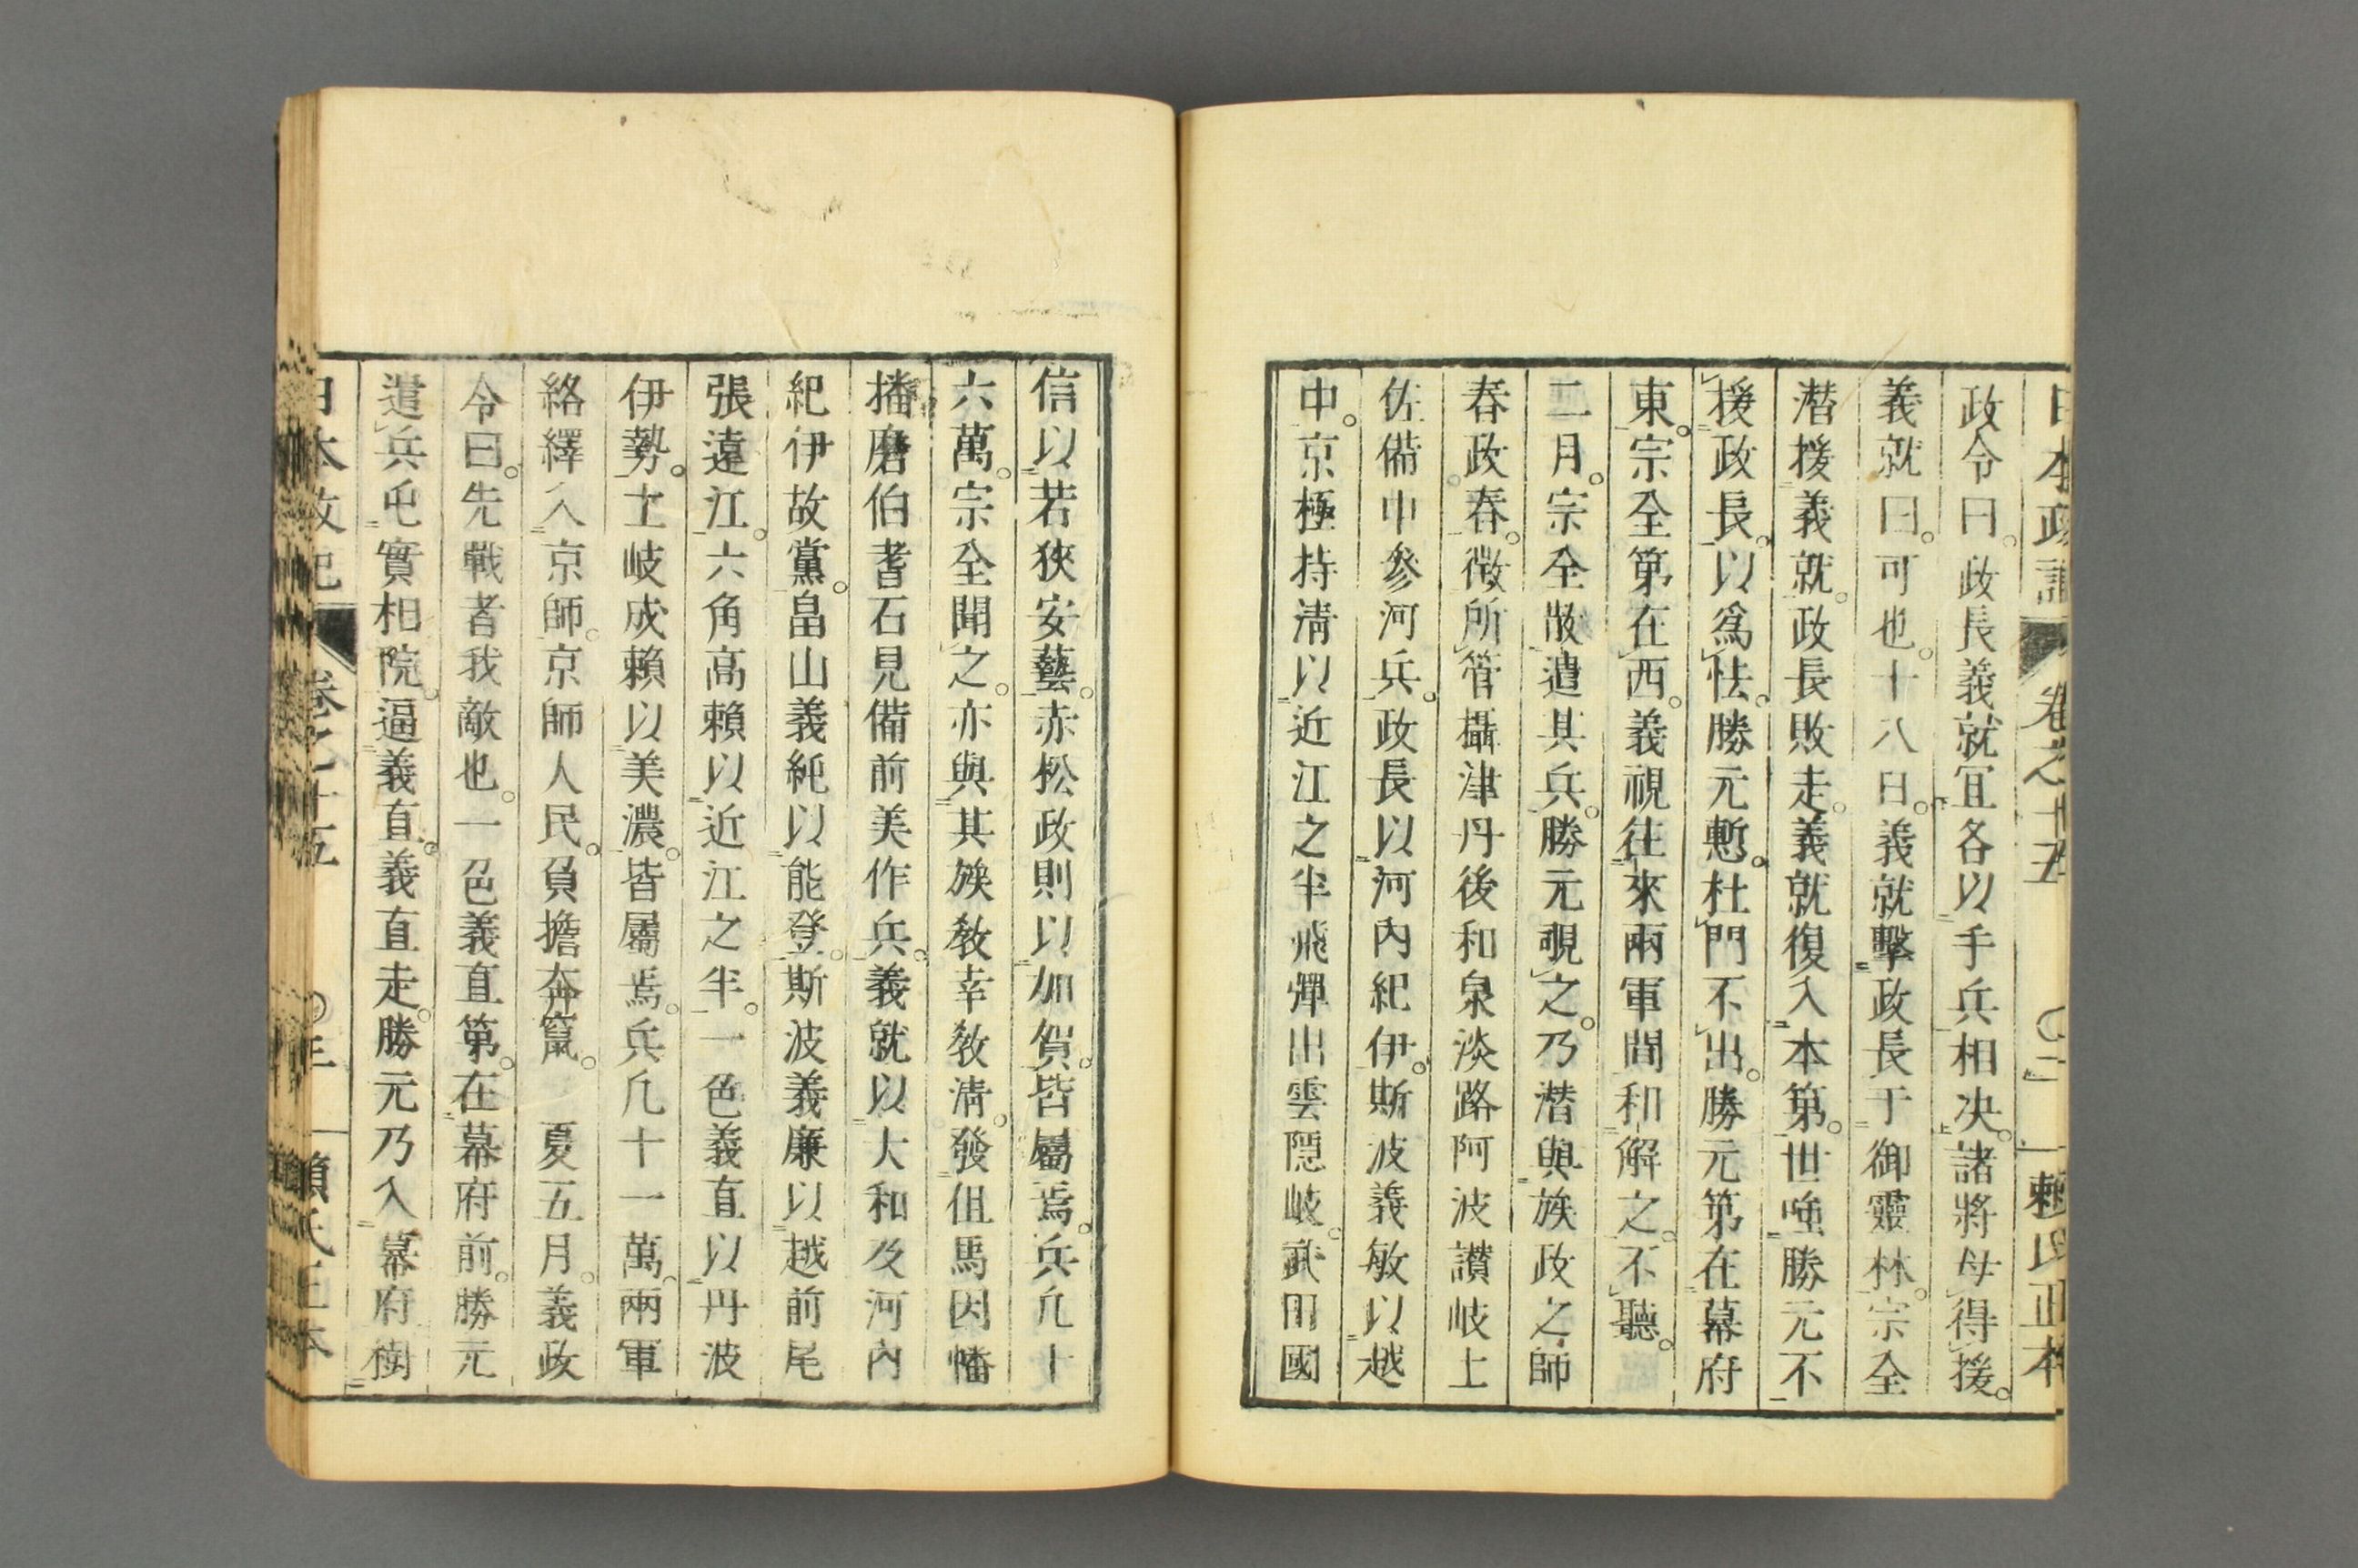 日本政記 卷之十五 〇二 賴氏正本
政令曰。政長義就宜各以手兵相决。諸將毋得援。
義就曰。可也。十八日。義就擊政長于御靈林。宗全
潛援義就。政長敗走。義就復入本第。世嗤勝元不
援政長。以爲怯。勝元慙。杜門不出。勝元第在幕府
東。宗全第在西。義視往來兩軍間和解之。不聽。
二月。宗全散遣其兵。勝元覗之。乃潛與族政之師
春政春。徵所管攝津丹後和泉淡路阿波讃岐土
佐備中參河兵。政長以河內紀伊。斯波義敏以越
中。京極持淸以近江之半飛彈出雲隱岐。武田國
信以若狹安藝。赤松政則以加賀。皆屬焉。兵凢十
六萬。宗全聞之。亦與其族敎幸敎淸。發伹馬因幡
播磨伯耆石見備前美作兵。義就以大和及河內
紀伊故黨。畠山義純以能登。斯波義廉以越前尾
張遠江。六角高賴以近江之半。一色義直以丹波
伊勢。土岐成賴以美濃。皆屬焉。兵凢十一萬。兩軍
絡繹入京師。京師人民。負擔奔竄。 夏五月。義政
令曰。先戰者我敵也。一色義直第。在幕府前。勝元
遣兵屯實相院。逼義直。義直走。勝元乃入幕府樹
日本政記 卷之十五 〇三 賴氏正本